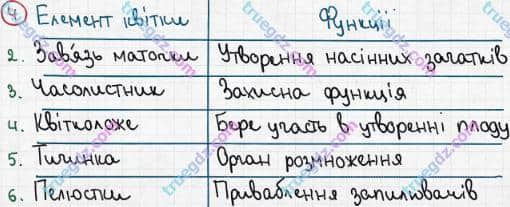 4 Елемент квітки Функції
2. Зав'язь маточки Утворення насінних зачатків
3. Чашолистник Захисна функція
4. Квітколоже Бере участь в утворенні плоду
5. Тичинка Орган розмноження
6. Пелюстки Приваблення запилювачів
truegdz.com